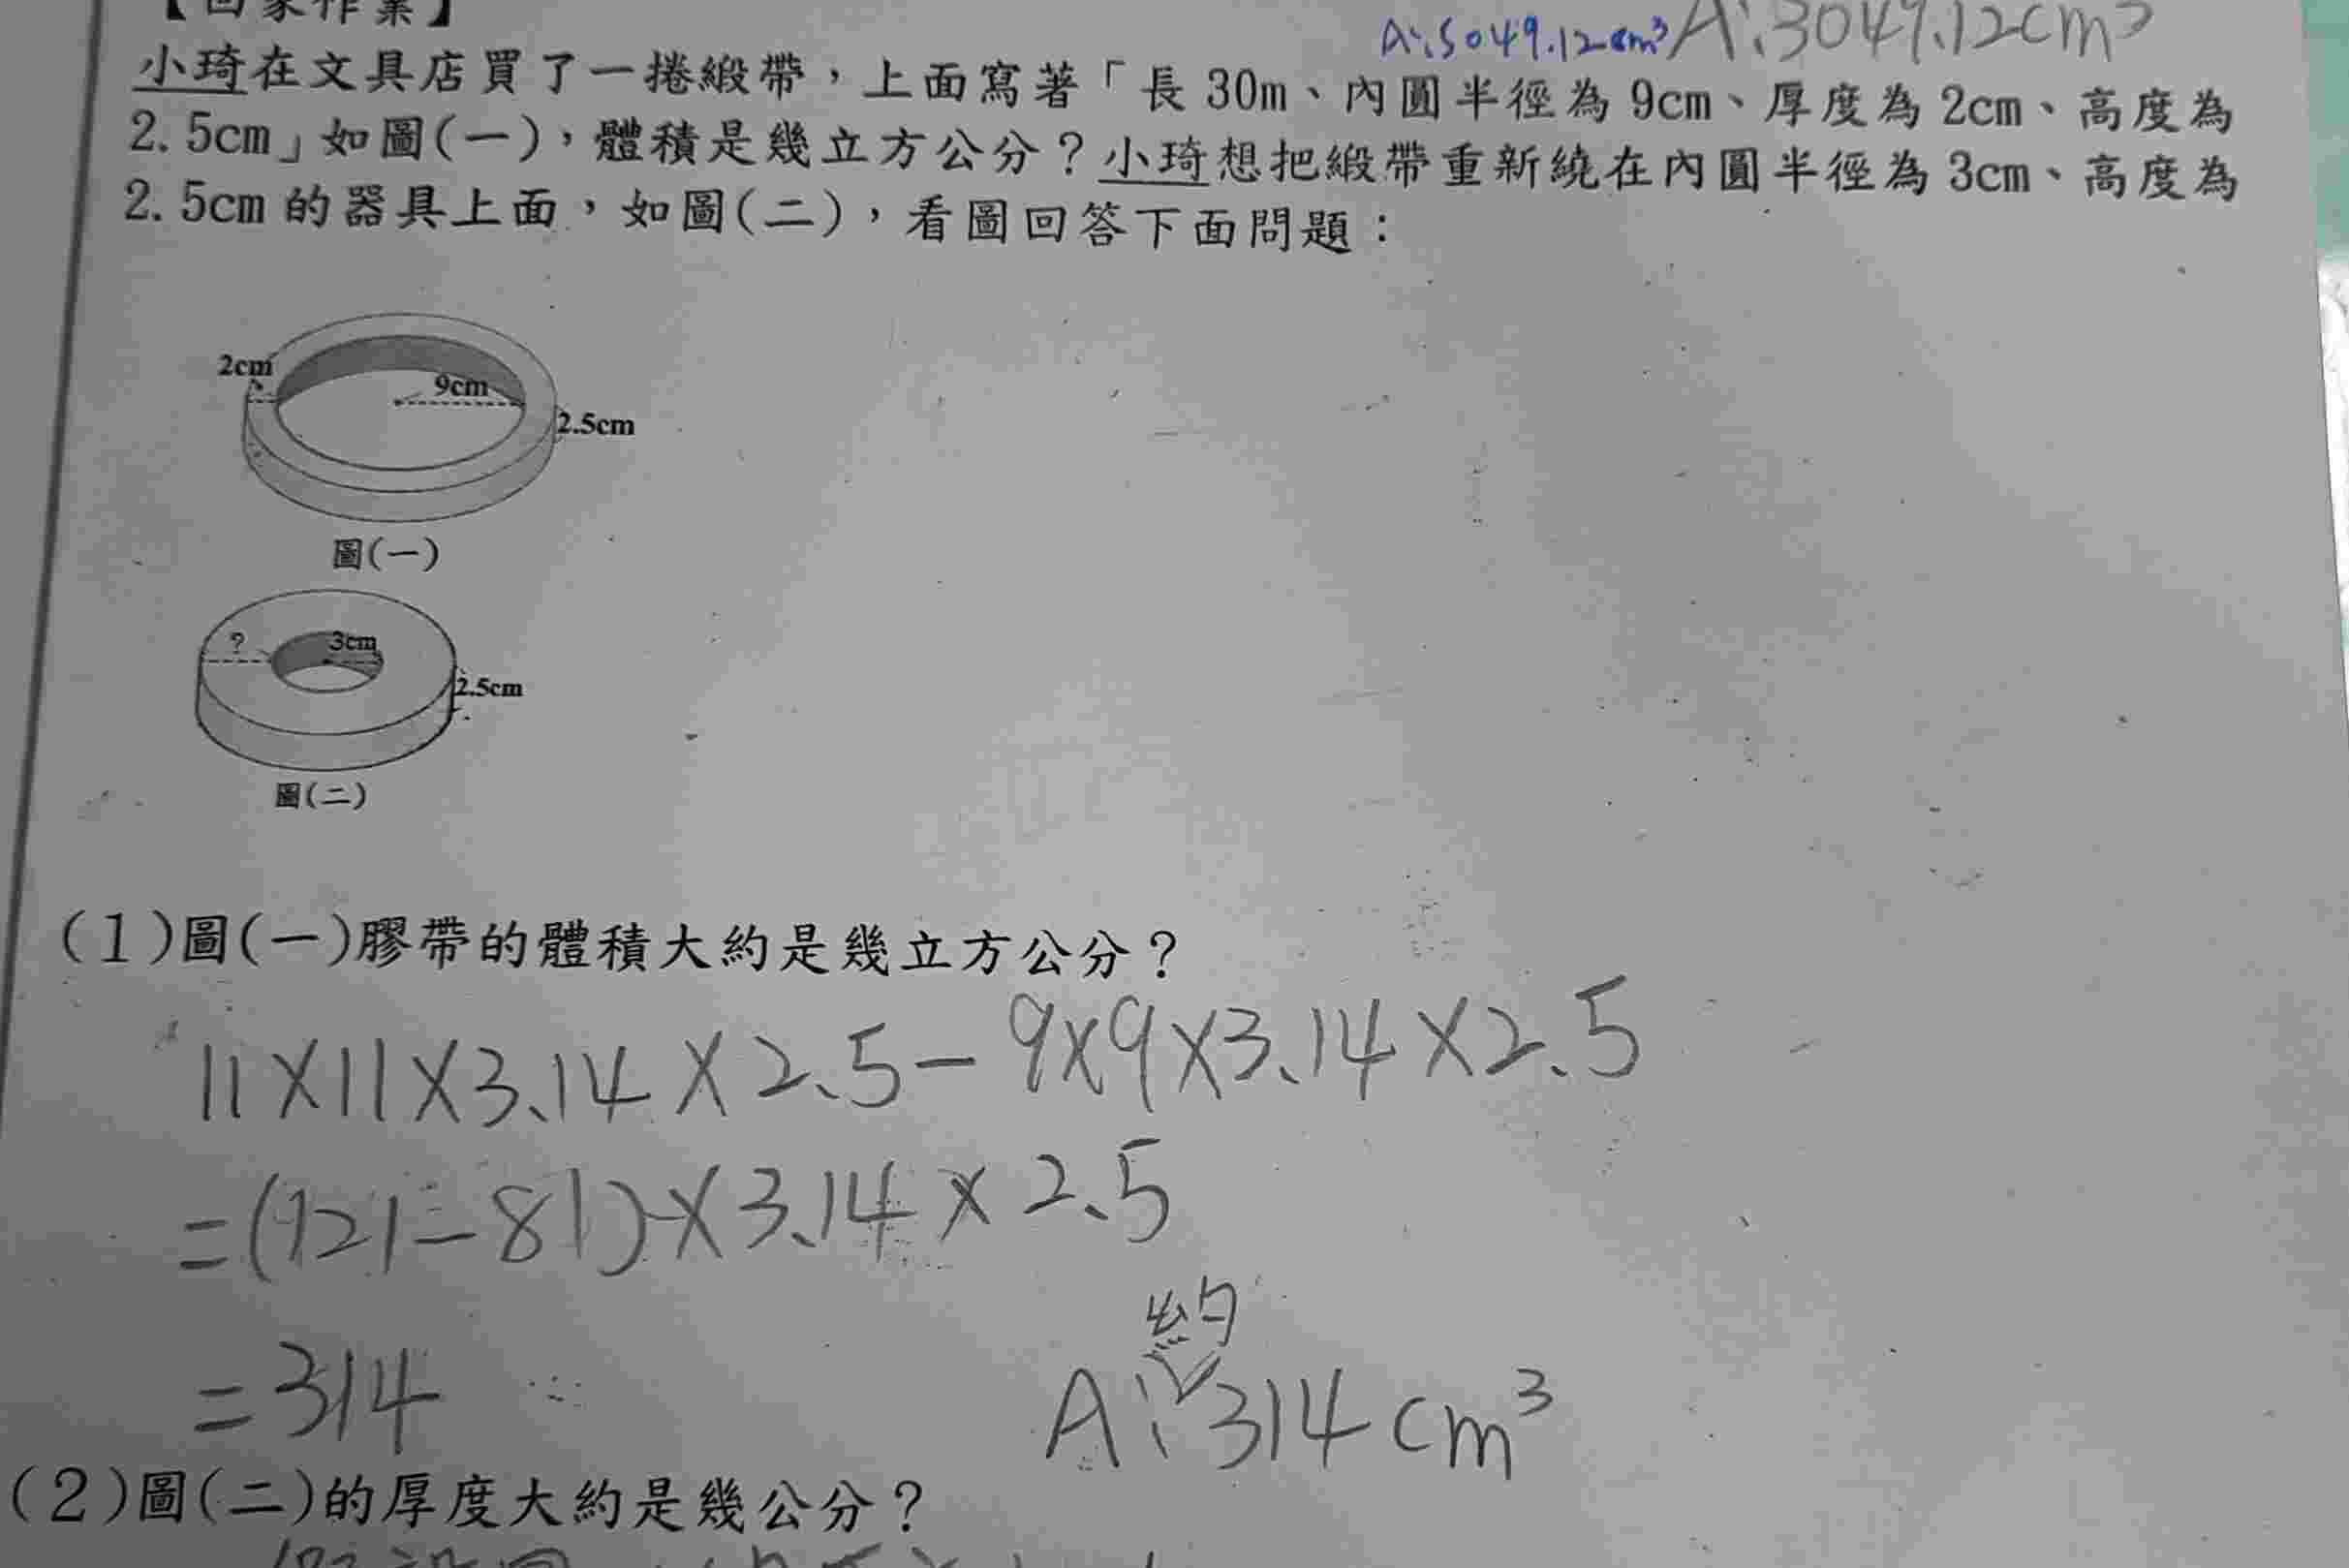 【回家作業】
A:5049.12cm³ A:3049.12cm³
小琦在文具店買了一捲緞帶，上面寫著「長 30m、內圓半徑為 9cm、厚度為 2cm、高度為
2.5cm」如圖(一)，體積是幾立方公分？小琦想把緞帶重新繞在內圓半徑為 3cm、高度為
2.5cm 的器具上面，如圖(二)，看圖回答下面問題：
2cm
9cm
2.5cm
圖(一)
?
3cm
2.5cm
圖(二)
(1)圖(一)膠帶的體積大約是幾立方公分？
11×11×3.14×2.5-9×9×3.14×2.5
=(121-81)×3.14×2.5
=314
約
A:314cm³
(2)圖(二)的厚度大約是幾公分？